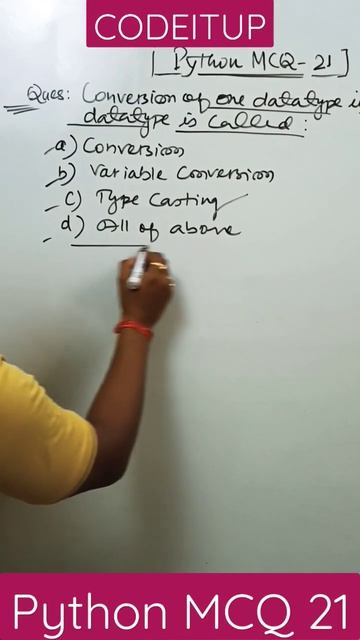 CODEITUP
[Python MCQ-21]
Ques: Conversion of one datatype i
datatype is called:
a) Conversion
b) Variable Conversion
c) Type Casting
d) All of above
Python MCQ 21